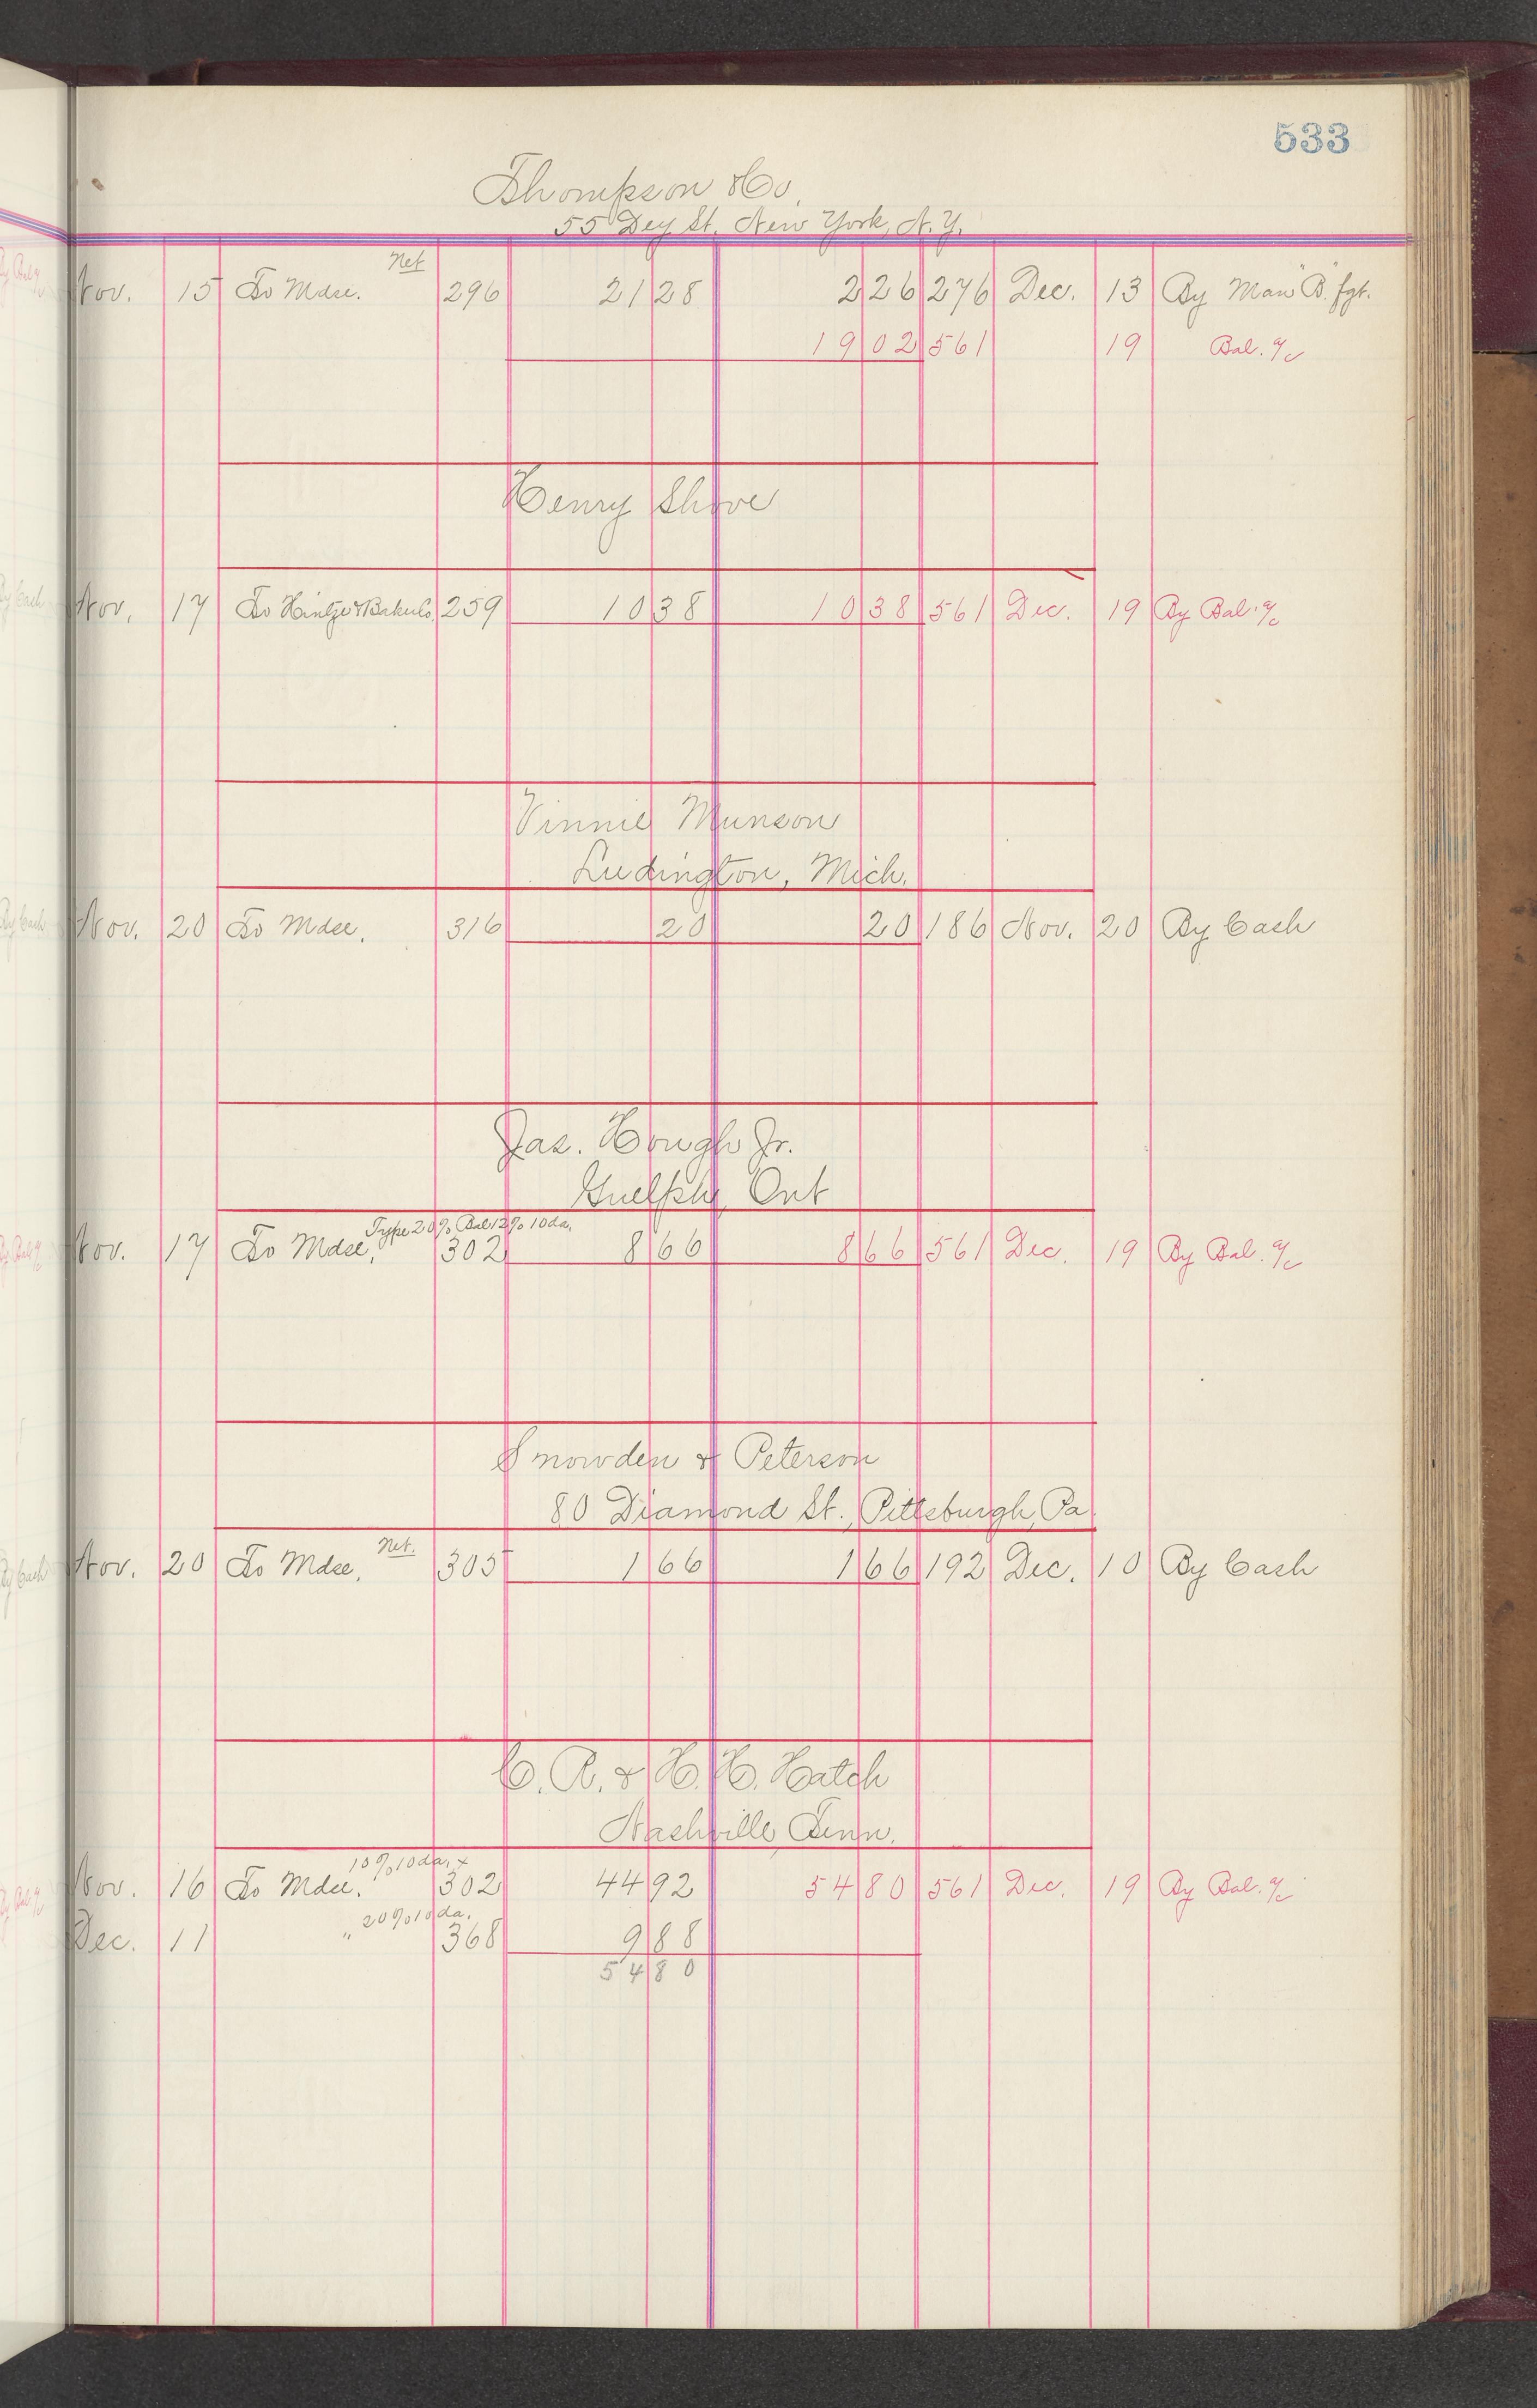 533
Thompson & Co.
55 Dey St. New York, N.Y.
Net
Nov. 15 To Mdse. 296 21 28 2 26 276 Dec. 13 By Man "B" fgt.
19 02 561 19 Bal. a/c
Henry Shove
Nov. 17 To 259 10 38 10 38 561 Dec. 19 By Bal. a/c
Vinnie Munson
Ludington, Mich.
Nov. 20 To Mdse. 316 20 20 186 Nov. 20 By Cash
Jas. Hough Jr.
Guelph, Ont
Type 20% Bal 12% 10 da.
Nov. 17 To Mdse. 302 8 66 8 66 561 Dec. 19 By Bal. a/c
Snowden & Peterson
80 Diamond St., Pittsburgh, Pa.
Net.
Nov. 20 To Mdse. 305 1 66 1 66 192 Dec. 10 By Cash
C. R. & H. H. Hatch
Nashville Tenn.
10% 10 da. +
Nov. 16 To Mdse. 302 44 92 54 80 561 Dec. 19 By Bal. a/c
20% 10 da.
Dec. 11 " 368 9 88
54 80